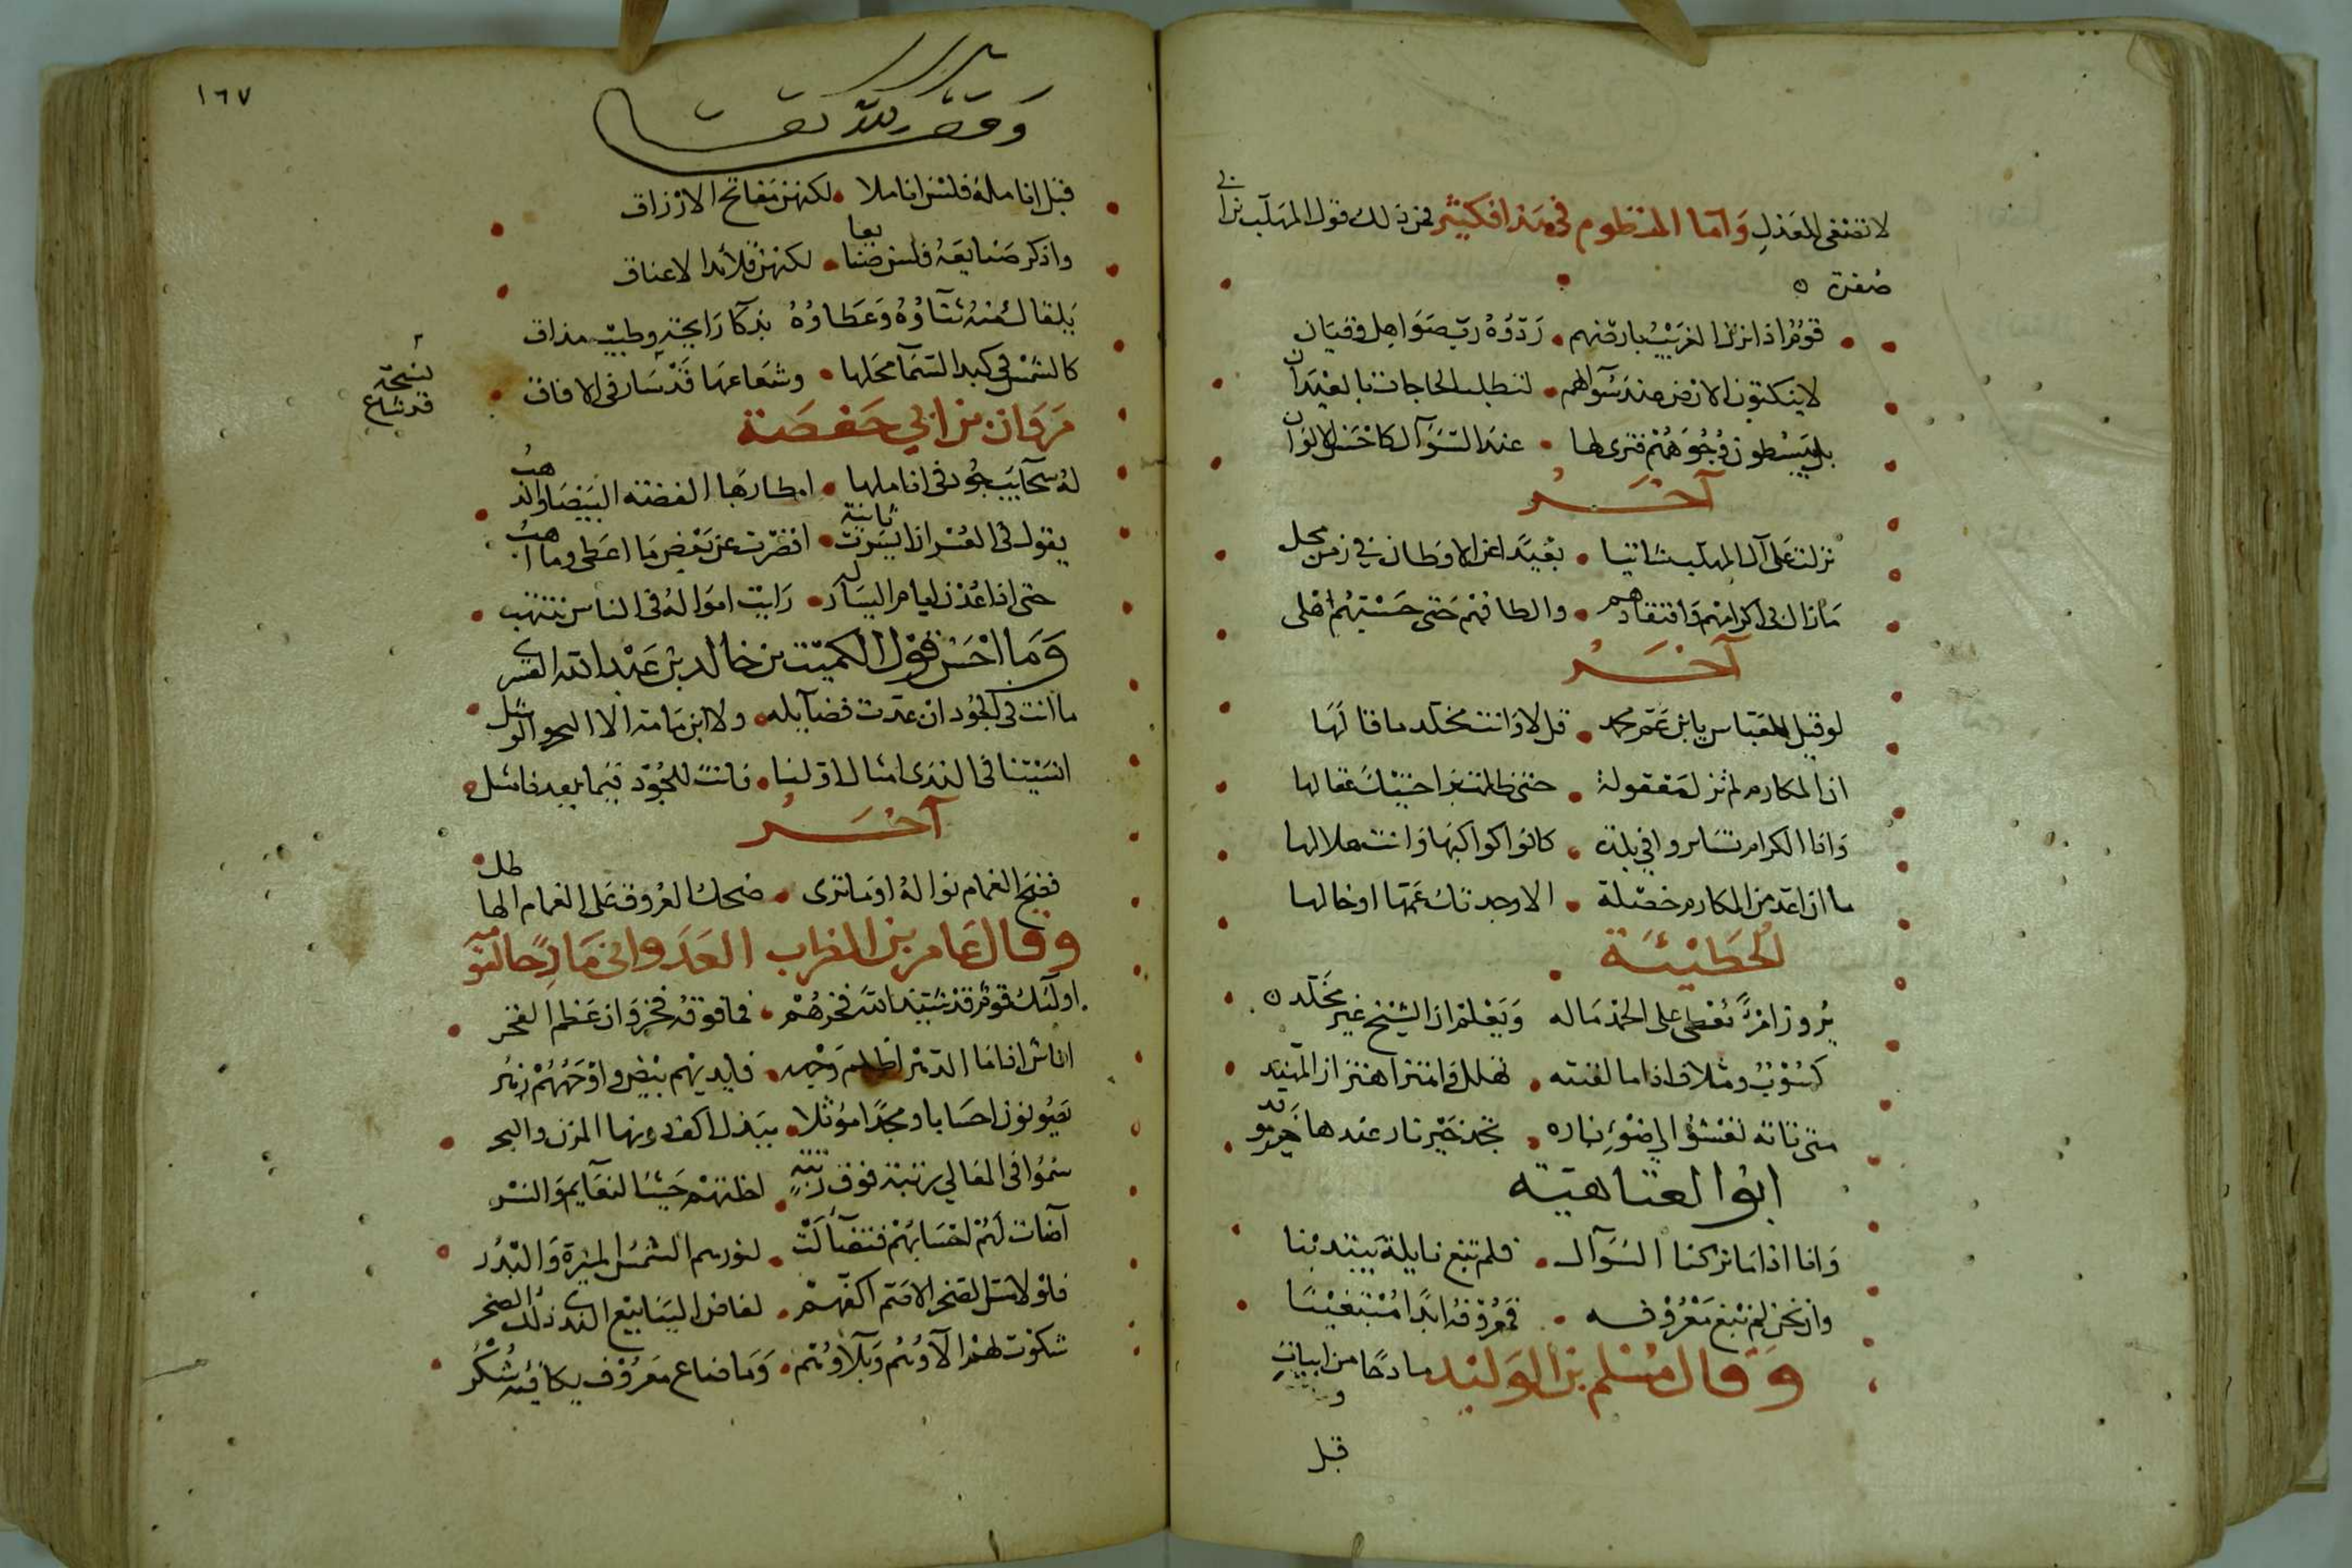 لا تصغى للعذل وَاما المنظوم في هذا فكثير فمن ذلك قول المهلب بن ابي
صفرة ه
قومٌ اذا نزل الغريبُ بارضهم • رَدّوُهُ ربّ صَوَاهل وقيَان
لا ينكتون الارض عند سَوالهم • لتطلب الحاجات بالعيدان
بل يَبسُطون وُجُوهَهُم فترى لها • عند السَّوآل كاحْسَن الالوان
آخَـــر
نزلت على آل المهلب شاتيا • بعيدًا عن الاوطان في زمن محل
مَا زال بي اكرامهم وَافتقادهم • والطافهم حَتى حَسبْتهُم اهْلى
آخَـــر
لو قيل للعَبّاس يا بن عَمّ محمد • قل لا وَانت مخلد ما قالَها
ان المكارم لم تزل معْقولة • حتى طلت براحتيْك عقالها
وَاذا الكرام تسَايروا في بلدة • كانوا كواكبَها وَانت هلالها
ما ان اعد من المكارم خصْلة • الا وجدتك عَمّها او خالها
الحُطَيْئَــة
يزور امرًا يُعْطى على الحمْد مَاله وَيَعْلم ان الشيخ غير مخَلّد ه
كسُوْبٌ ومتلاف اذا ما لقيته • تهلل وَاهتز اهتزاز المهند
متى تاته تعْشوُ الى ضوْءِ ناره • تجد خيْر نار عندها خير موقد
ابوُا العتاهيّه
وَانا اذا مَا تركنا السُوَآل • فلم نبغ نايلهُ يبتدئنا
وان نحن لم نبْغ مَعْرُوْفــه • فمَعْرُوْفهُ ابدًا مُبْتَغيْنَا
وَقال مُسْلم بن الوَليْد مادحًا من ابيات
قبل
١٦٧
قبّل انا ملهُ فلسْن انا ملا • لكنهن مَفاتح الارْزاق
واذكر صَنايعَهُ فلسن صنايعا • لكنهن قلائد الاعناق
يَلقاك منهُ ثنَآؤهُ وَعَطاؤهُ بذكآ رَايحَةٍ وطيب مذاق
كالشمْس في كبد السّمَآ محَلها • وشعَاعهَا قدْ سَار في الافاق
نسخة
قد شاع
مَرَوان بن ابي حَفصَة
لهُ سَحآيب جُود في انا ملها • امطارهَا الفضة البَيْضَاء والذهبُ
يقول في العُسْر ان ايسَرْت ثانية • اقصَرْت عن بَعْض مَا اعَطى وما اهبُ
حتى اذا عُدْن ايام اليسَآر له • رَايت اموَالهُ في الناس تنتهب
وَمَا احْسَن قوْل الكميت بن خالد بن عَبْد الله القسرى
ما انت في الجُود ان عدّت فضآيله • ولا ابن مَامة الا البحر والوشل
انسَيْتنا في الندَى امثال اوّلنا • فانت للجُوْد فيْما بعد فا مثل
آخَـــر
فضِحَ الغمام نوالهُ اوَما ترى • ضحك البُروق على الغمام الهاطل
وقال عَامر بن الظرب العَدَواني مَادِحًا لقوْمه
اولَئكَ قومٌ قدْ شيّدَ اللهَ فخرهُمْ • فما فوقهُ فخر وَان عَظم الفخر
اناس اذا مَا الدّهْر اظلم وَجْهه • فايديهم بيْض واوْجههُمْ زهْر
يَصُونون احسَابا ومجدًا مؤثلا • ببَذل اكف دونها المزن والبحر
سَمُوا في المعَالي رتبة فوق رتبةٍ • احَلتهُمْ حَيْث النعَآيم وَالنسْر
آضَات لهُمْ احْسَابهُم فتضَآءَلتْ • لنورهم الشمْسُ المنيْرة وَالبَدْر
فلوْ لامَسَ الصَخر الاصَم اكفهمْ • لفاض اليَنابيْع الندى ذلك الصخر
شكوْت لهُمْ الآءَهُم وَبلآوهُم • وَمَا ضاع مَعْرُوْف يكافئهُ شُكْر